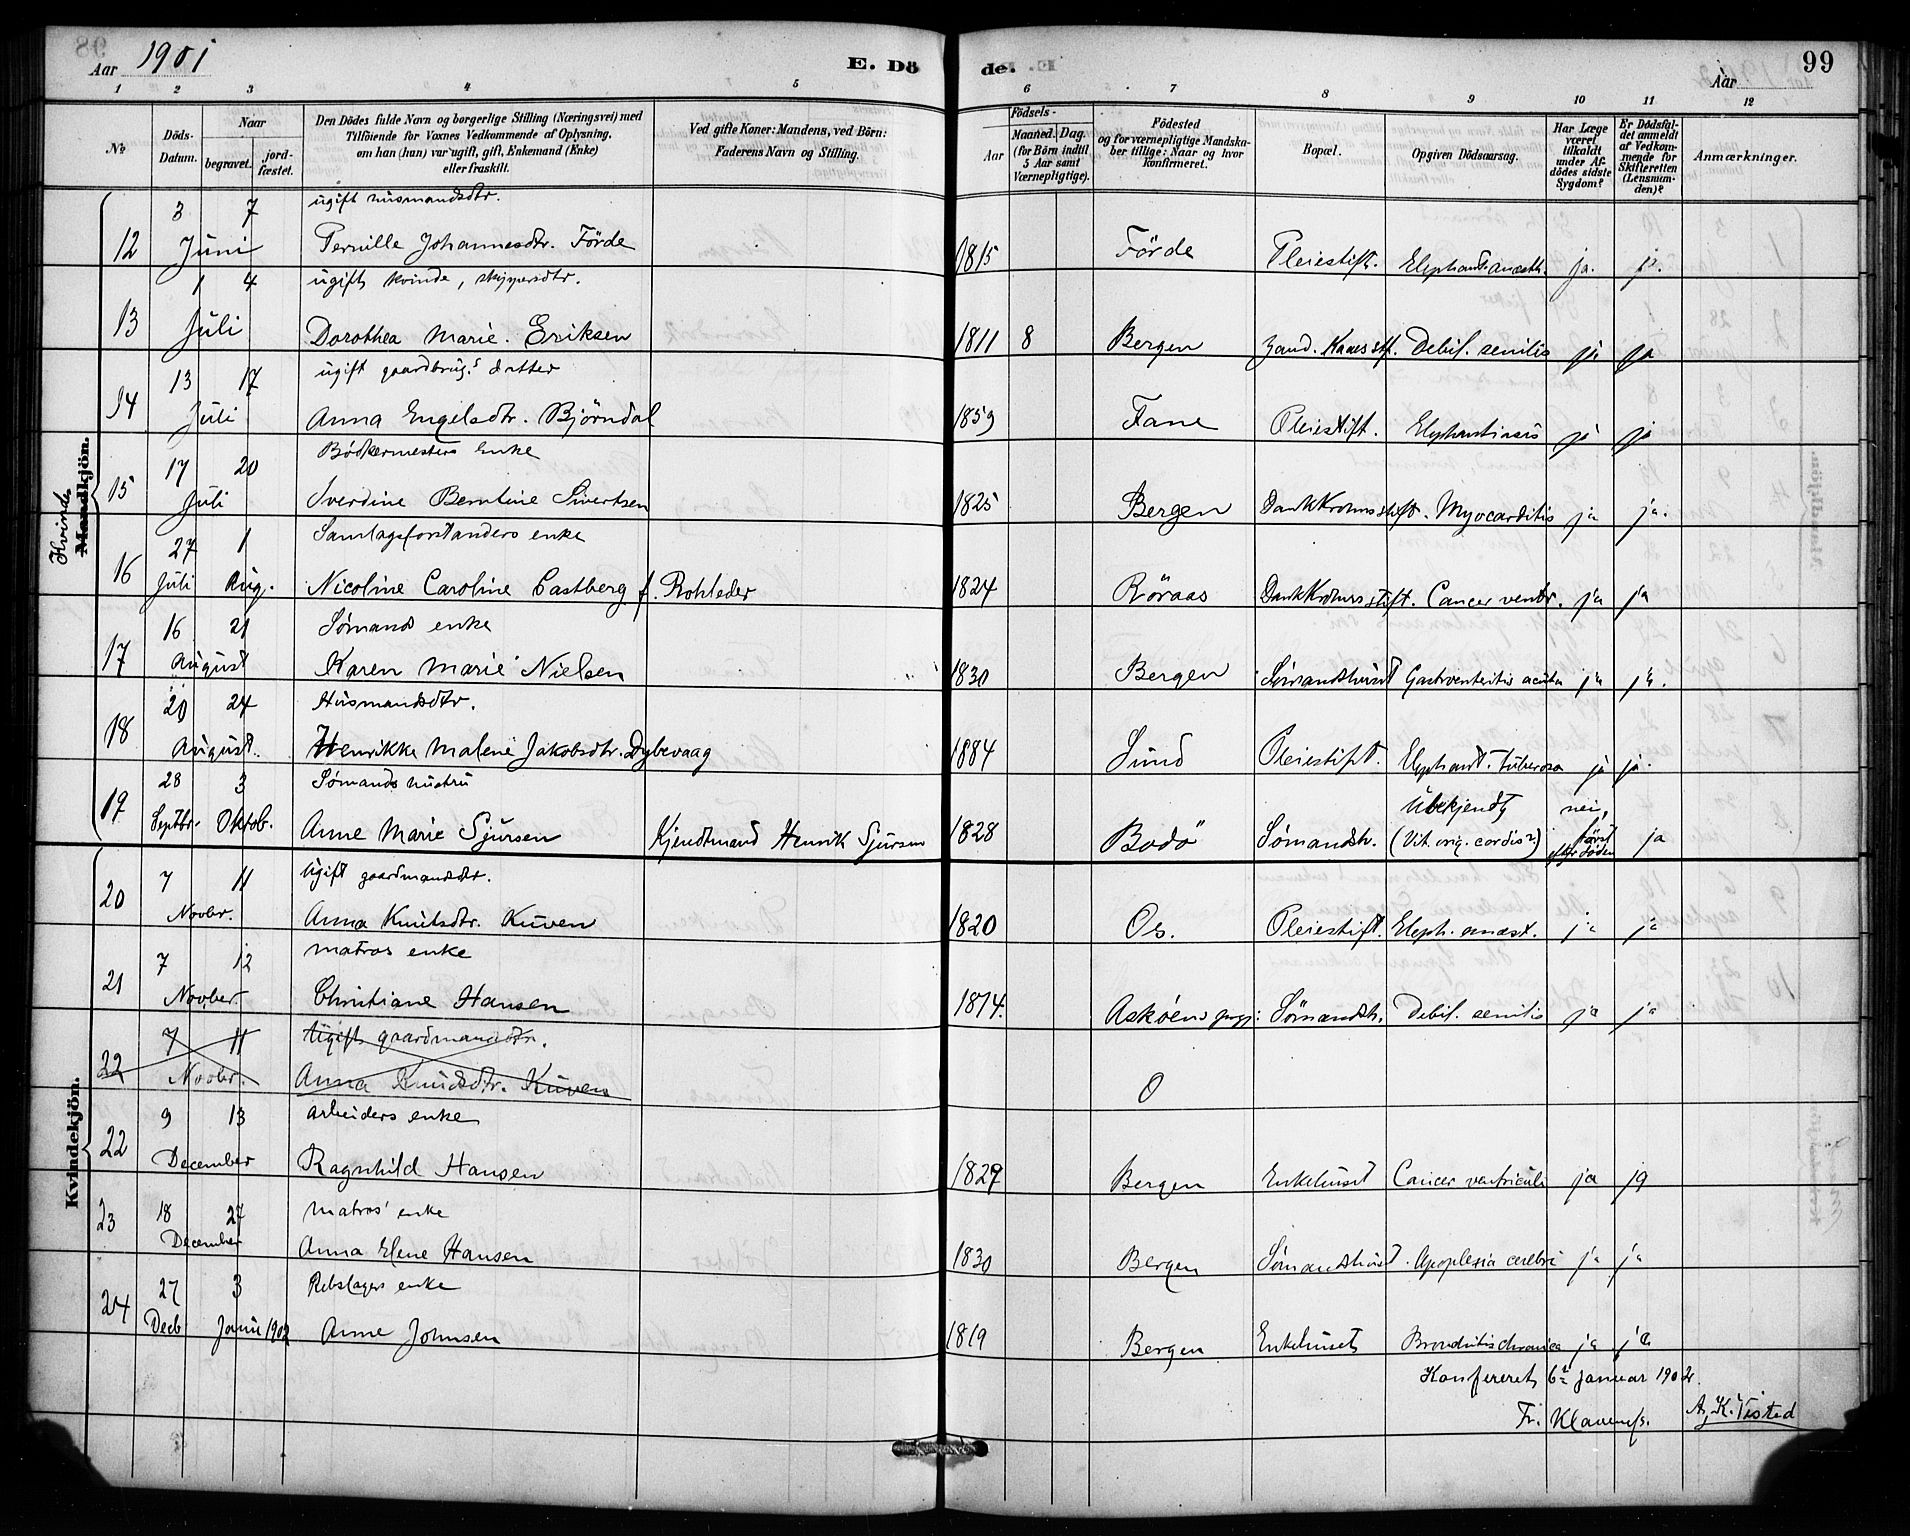 Aar 1901 E. Dö de. Aar 99
1 2 3 4 5 6 7 8 9 10 11 12
No
Döds-Datum.
Naar begravet. jordfæstet.
Den Dödes fulde Navn og borgerlige Stilling (Næringsvei) med
Tilföiende for Voxnes Vedkommende af Oplysning,
om han (hun) var ugift, gift, Enkemand (Enke)
eller fraskilt.
Ved gifte Koner: Mandens, ved Börn:
Faderens Navn og Stilling.
Födsels-
Aar Maaned. Dag.
(for Börn indtil
5 Aar samt
Værnepligtige).
Födested
og for værnepligtige Mandska-
ber tillige: Naar og hvor
konfirmeret.
Bopæl.
Opgiven Dödsaarsag.
Har Læge
været
tilkaldt
under Af-
dödes sidste
Sygdom?
Er Dödsfal-
det anmeldt
af Vedkom-
mende for
Skifteretten
(Lensman-
den)?
Anmærkninger.
Kvinde
Mandkjön.
3 7 ugift husmandsdtr.
12 Juni Pernille Johannesdtr. Förde 1815 Förde Pleiestift. Elephant. anæsth. ja. ja.
1 4 ugift kvinde, skippersdtr.
13 Juli Dorothea Marie. Eriksen 1811 8 Bergen Zand. Kaaes stf. Debil. senilis ja ja
13 17 ugift gaardbrug.s datter
14 Juli Anna Engelsdtr. Björndal 1859 Fane Pleiestift. Elephantiasis ja ja
17 20 Bödkermesters Enke
15 Juli Sverdine Berntine Sivertsen 1825 Bergen DankKrohns stift. Myocarditis ja ja.
27 1 Samlagsforstanders enke
16 Juli Aug. Nicoline Caroline Castberg f. Rohleder 1824 Röraas DankKrohns stift. Cancer ventr. ja ja
16 21 Sømands enke
17 August Karen Marie Nielsen 1830 Bergen Sømandshuset Gastroenteritis acuta ja ja.
20 24 Husmandsdtr.
18 August. Henrikke Malene Jakobsdtr. Dybevaag 1884 Sund Pleiestift. Elephant. tuberosa ja ja.
28 3 Sømands hustru
19 Septbr. Oktob. Anne Marie Sjursen Kjendtmand Henrik Sjursen 1828 Bodö Sømandsh. Ubekjendt (Vit. org. cordis?) nei, först efter döden ja
Kvindekjön.
7 11 Ugift gaardmandsdtr.
20 Novbr. Anna Knutsdtr. Kuven 1820 Os. Pleiestift. Eleph. anæst. ja ja
7 12 matros enke
21 Novber. Christiane Hansen 1814. Askøens prgj: Sømandsh. Debil. senilis ja ja
7 11 Ugift gaardmandsdtr.
22 Novbr. Anna Knudsdtr. Kuven O
9 13 arbeiders enke
22 December Ragnhild Hansen 1829 Bergen Enkehuset Cancer ventriculi ja ja
18 24 matros' enke
23 December Anna Elene Hansen 1830 Bergen Sømandshuset Apoplexia cerebri ja ja
27 3 Rebslagers enke
24 Decb Janu 1902 Anne Johnsen 1819 Bergen Enkehuset Bronchitis chronica ja ja
Konfereret 6te januar 1902.
Fr. Klaveness. A, K. Visted